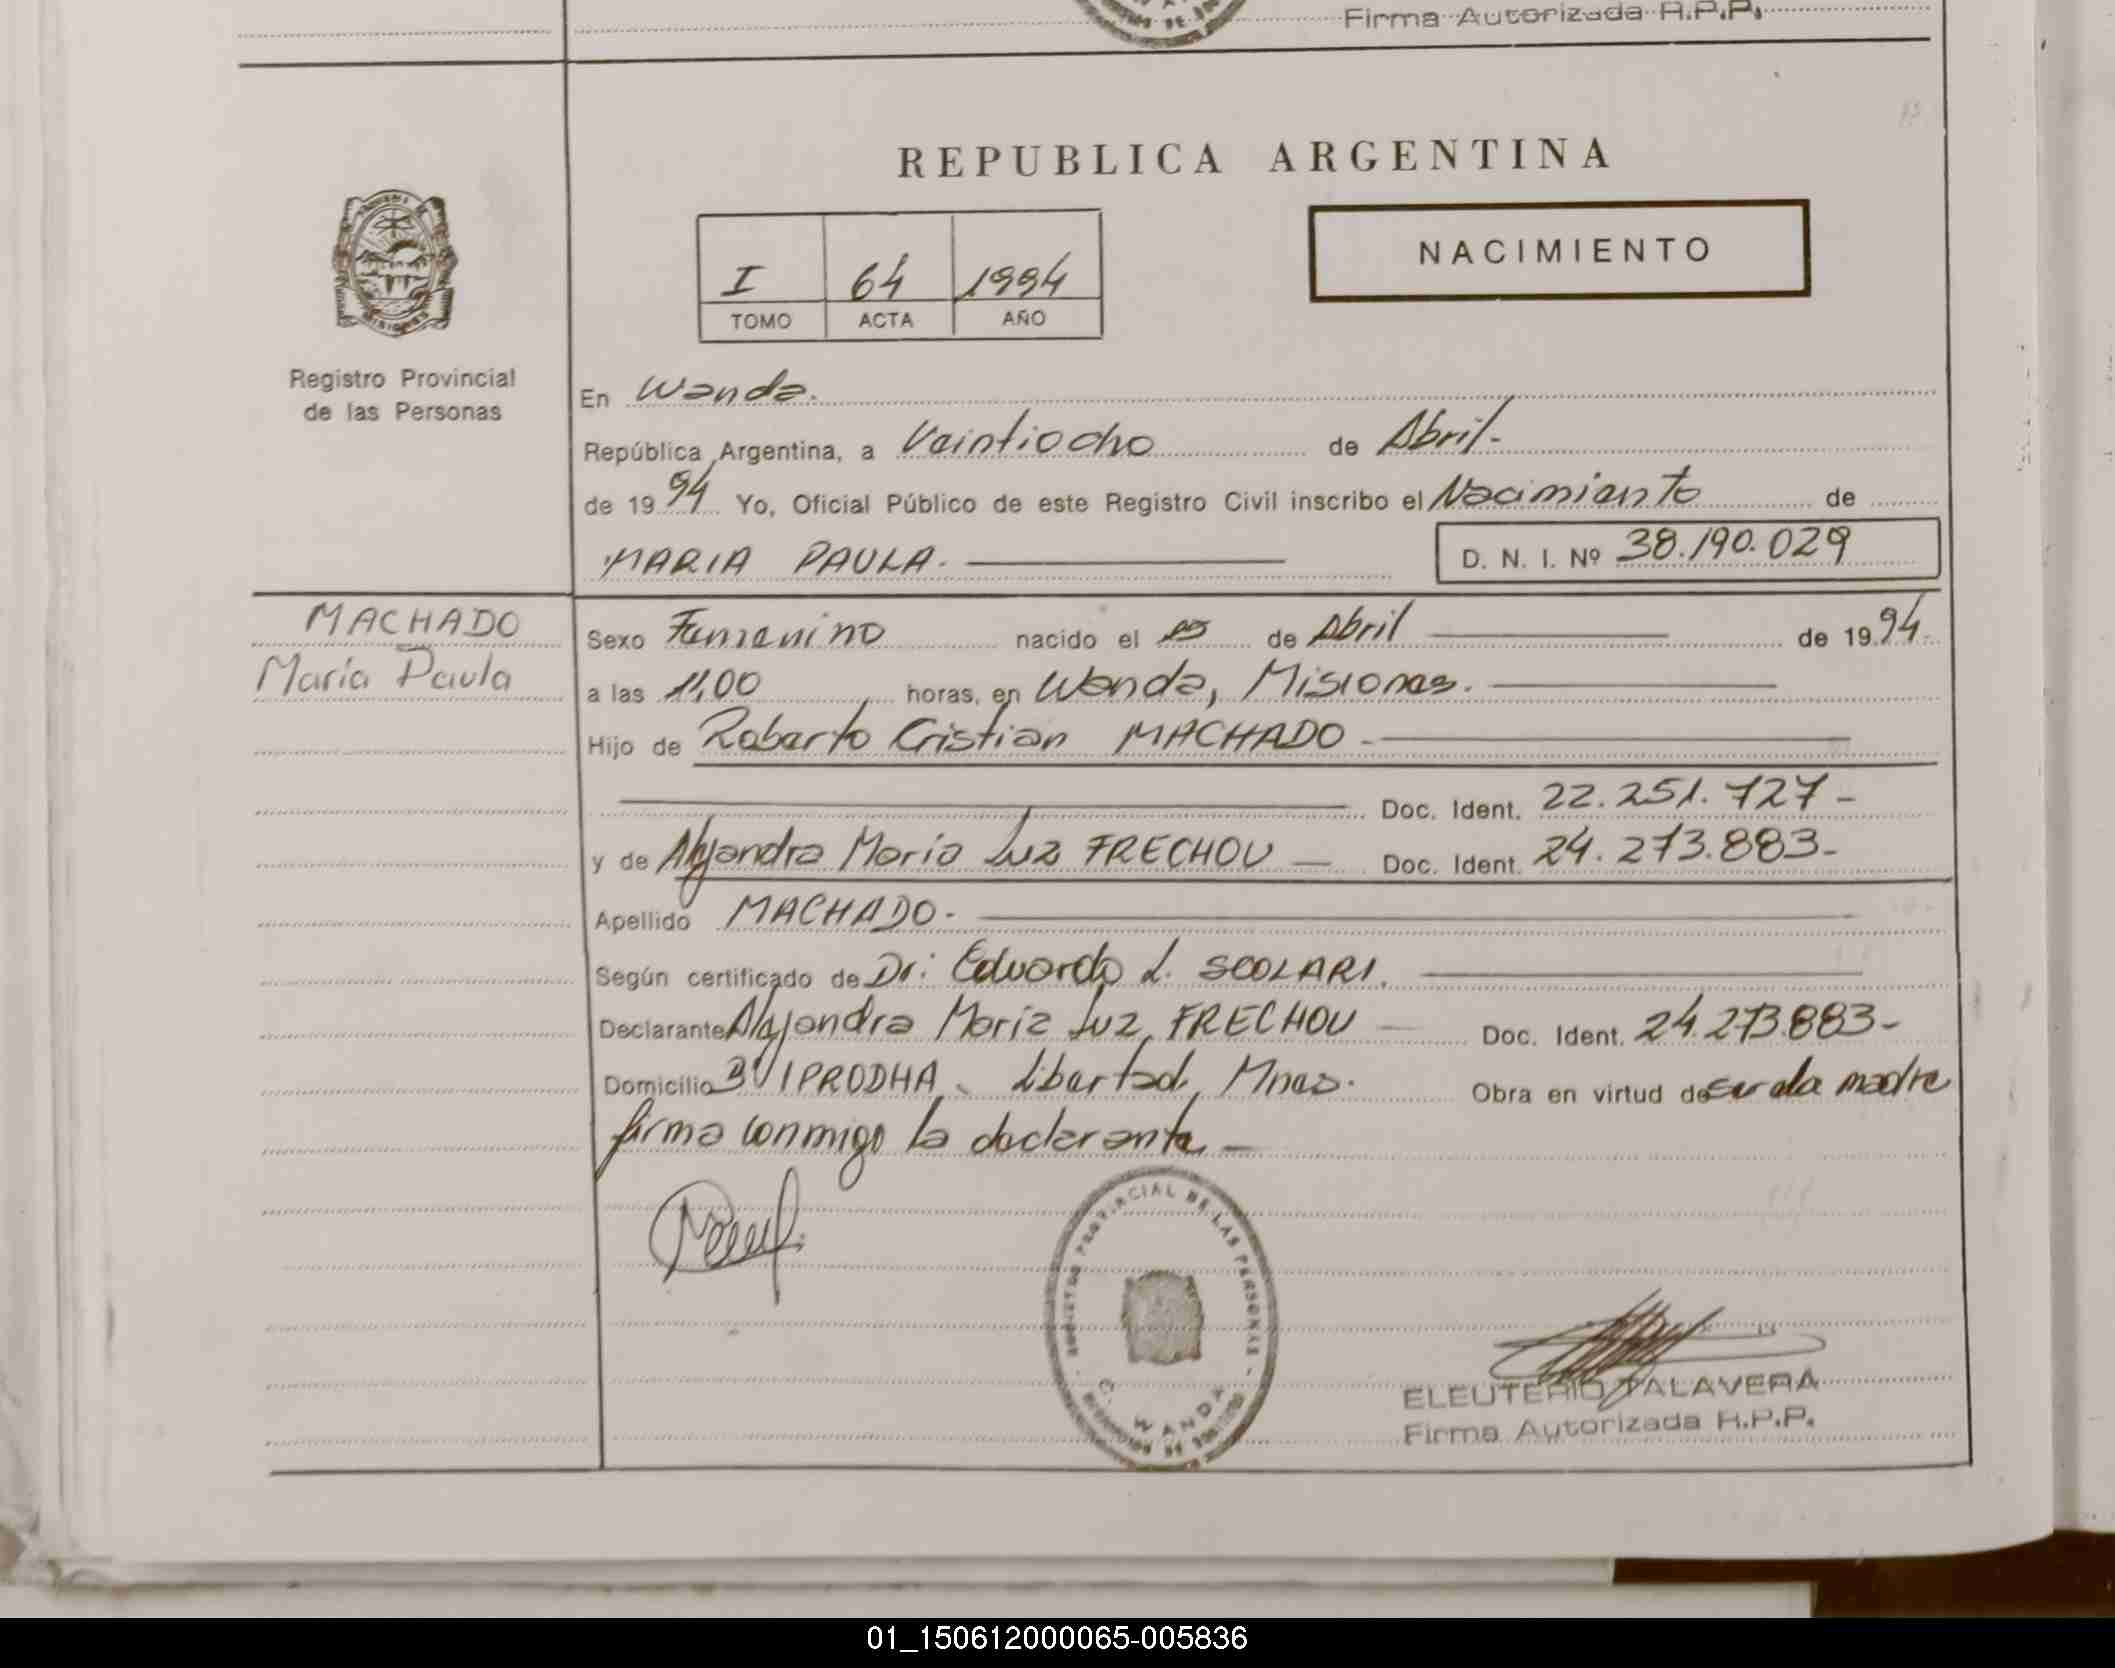 Firma Autorizada R.P.P.
REPUBLICA ARGENTINA
NACIMIENTO
I 64 1994
TOMO ACTA AÑO
Registro Provincial
de las Personas
En Wanda.
República Argentina, a Veintiocho de Abril.-
de 19 94 Yo, Oficial Público de este Registro Civil inscribo el Nacimiento de
MARIA PAULA. D. N. I. Nº 38.190.029
MACHADO
María Paula
Sexo Femenino nacido el de Abril de 19 94
a las 11,00 horas, en Wanda, Misiones.
Hijo de Roberto Cristian MACHADO -
Doc. Ident. 22.251.727-
y de Alejandra Maria Luz FRECHOU — Doc. Ident. 24.273.883-
Apellido MACHADO.-
Según certificado de Dr: Eduardo L. SCOLARI.
Declarante Alejandra Maria Luz FRECHOU — Doc. Ident. 24.273.883-
Domicilio Bº IPRODHA, Libertad, Mnes. Obra en virtud de ser la madre
firma conmigo la declarante.—
REGISTRO PROVINCIAL DE LAS PERSONAS
WANDA
ELEUTERIO TALAVERA
Firma Autorizada R.P.P.
01_150612000065-005836